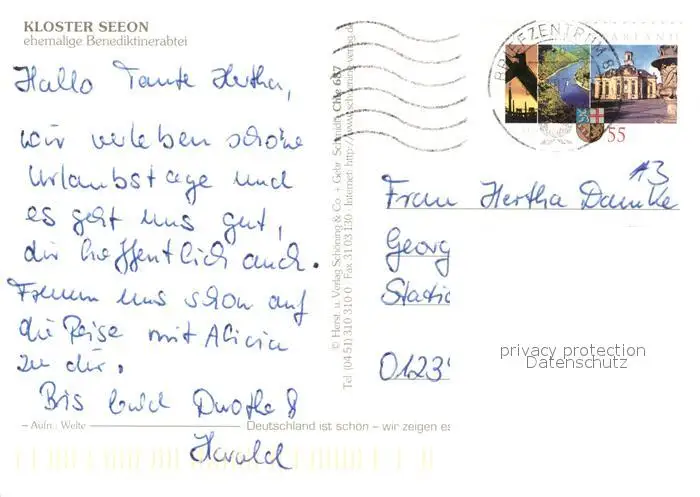 KLOSTER SEEON
ehemalige Benediktinerabtei
Hallo Tante Hertha,
wir verleben schöne
Urlaubstage und
es geht uns gut,
dir hoffentlich auch.
Freuen uns schon auf
die Reise mit Alicia
zu dir.
Bis bald Dorothe &
Harald
– Aufn.: Welte
Deutschland ist schön – wir zeigen es
© Herst. u. Verlag Schöning & Co. + Gebr. Schmidt, Che 687
Tel. (04 51) 310 310 0 · Fax 31 03 130 · Internet: http://www.schoening-verlag.de
BRIEFZENTRUM 8
SAARLAND
55
#3
Frau Hertha Damke
Georg
Static
0123
privacy protection
Datenschutz